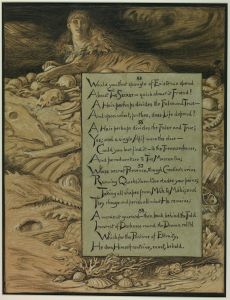 Would you that spangle of Existence spend
About The Secret—quick about it Friend!
A Hair perhaps divides the False and True—
And upon what, prithee, does Life depend?
A Hair perhaps divides the False and True;
Yes; and a single Alif were the clue—
Could you but find it—to the Treasure-house,
And peradventure to The Master too;
Whose secret Presence, through Creation's veins
Running Quicksilver-like eludes your pains;
Taking all shapes from Máh to Máhi; and
They change and perish all—but He remains;
A moment guess'd—then back behind the Fold
Immerst of Darkness round the Drama roll'd
Which for the Pastime of Eternity,
He does Himself contrive, enact, behold.